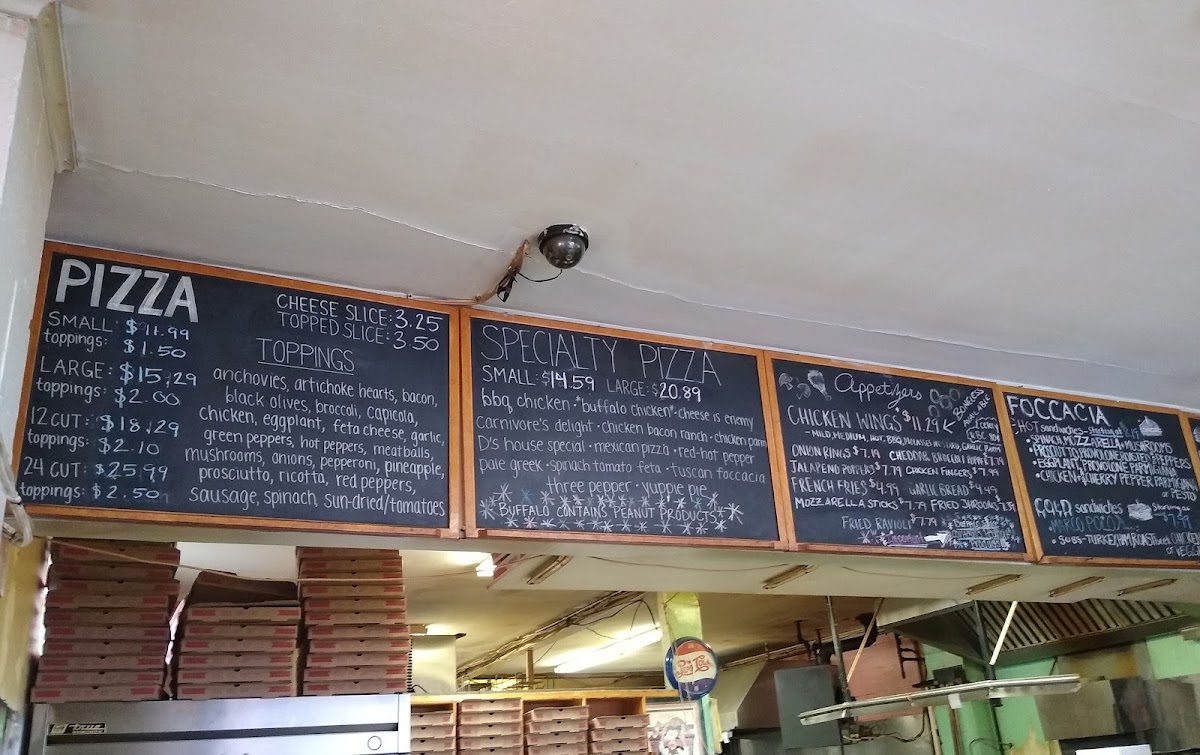 PIZZA
SMALL: $11.99
toppings: $1.50
LARGE: $15.29
toppings: $2.00
12 CUT: $18.29
toppings: $2.10
24 CUT: $25.99
toppings: $2.50
CHEESE SLICE: 3.25
TOPPED SLICE: 3.50
TOPPINGS
anchovies, artichoke hearts, bacon,
black olives, broccoli, capicola,
chicken, eggplant, feta cheese, garlic,
green peppers, hot peppers, meatballs,
mushrooms, onions, pepperoni, pineapple,
prosciutto, ricotta, red peppers,
sausage, spinach sun-dried/tomatoes
SPECIALTY PIZZA
SMALL: $14.59 LARGE: $20.89
bbq chicken · *buffalo chicken* · cheese is enemy
carnivore's delight · chicken bacon ranch · chicken parm
D's house special · mexican pizza · red-hot pepper
pale greek · spinach tomato feta · tuscan foccacia
three pepper · yuppie pie
*BUFFALO CONTAINS PEANUT PRODUCTS*
Appetizers
BONELESS AVAILABLE
CHICKEN WINGS $11.29
- MILD, MEDIUM, HOT, BBQ,
ONION RINGS $7.19
JALAPENO POPPERS $7.79 CHICKEN FINGERS $7.79
FRENCH FRIES $4.99 GARLIC BREAD $4.49
MOZZARELLA STICKS $7.79 FRIED SHROOMS
FRIED RAVIOLI $7.79
FOCCACIA
HOT sandwiches
· SPINACH MUZZARELLA + MUSHROOMS
· EGGPLANT, PROVOLONE PARMIGIANA
· CHICKEN + CHERRY PEPPER PARMIGIANA
or PESTO
COLD sandwiches Starting at
MARCO POLO
· SUBS - TURKEY, HAM, ROAST
True